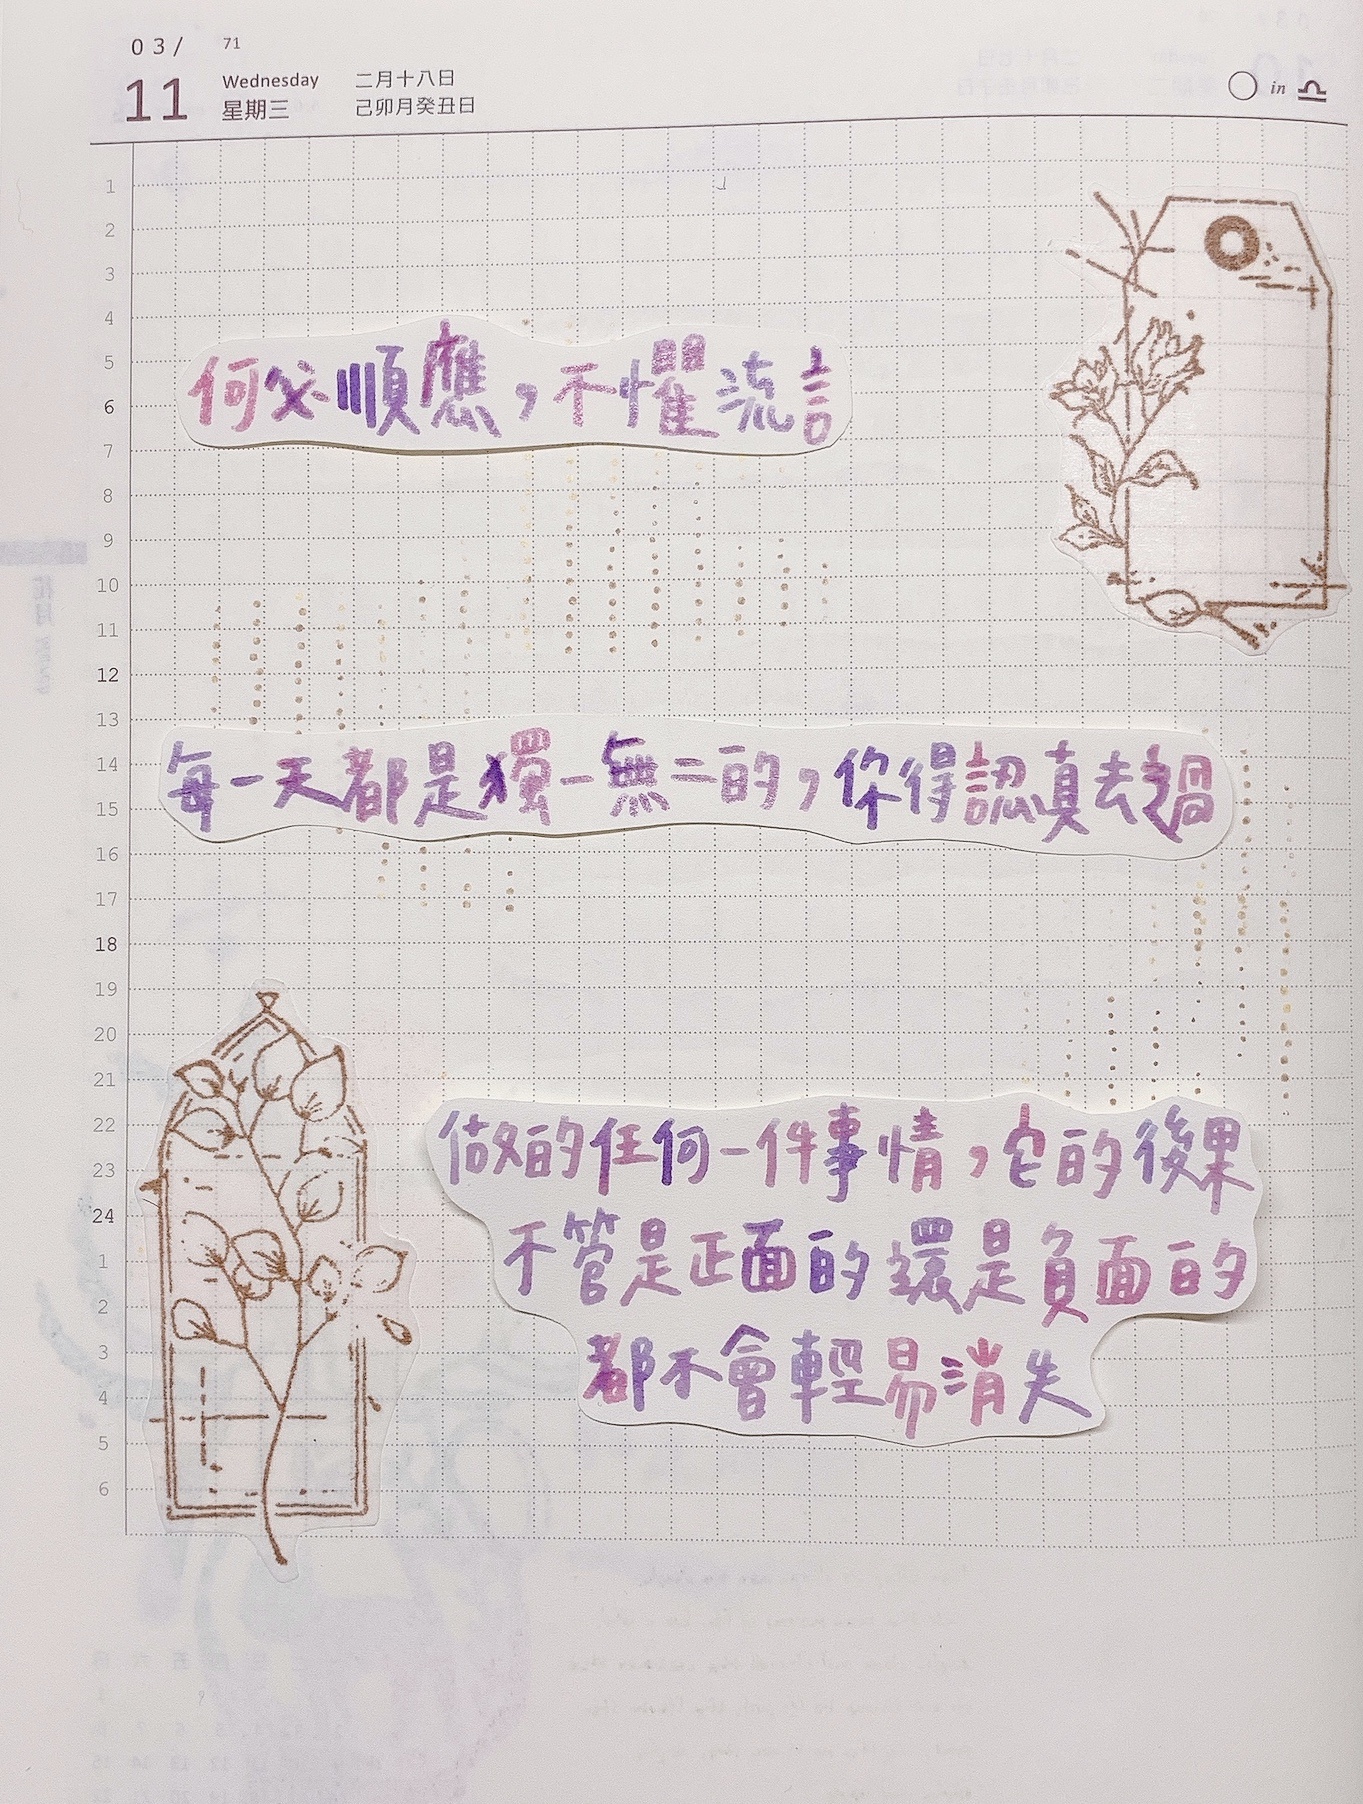 03/ 71
11 Wednesday 二月十八日
星期三 己卯月癸丑日
in ♎
1
2
3
4
5
6
7
8
9
10
11
12
13
14
15
16
17
18
19
20
21
22
23
24
1
2
3
4
5
6
何必順應，不懼流言
每一天都是獨一無二的，你得認真去過
做的任何一件事情，它的後果
不管是正面的還是負面的
都不會輕易消失